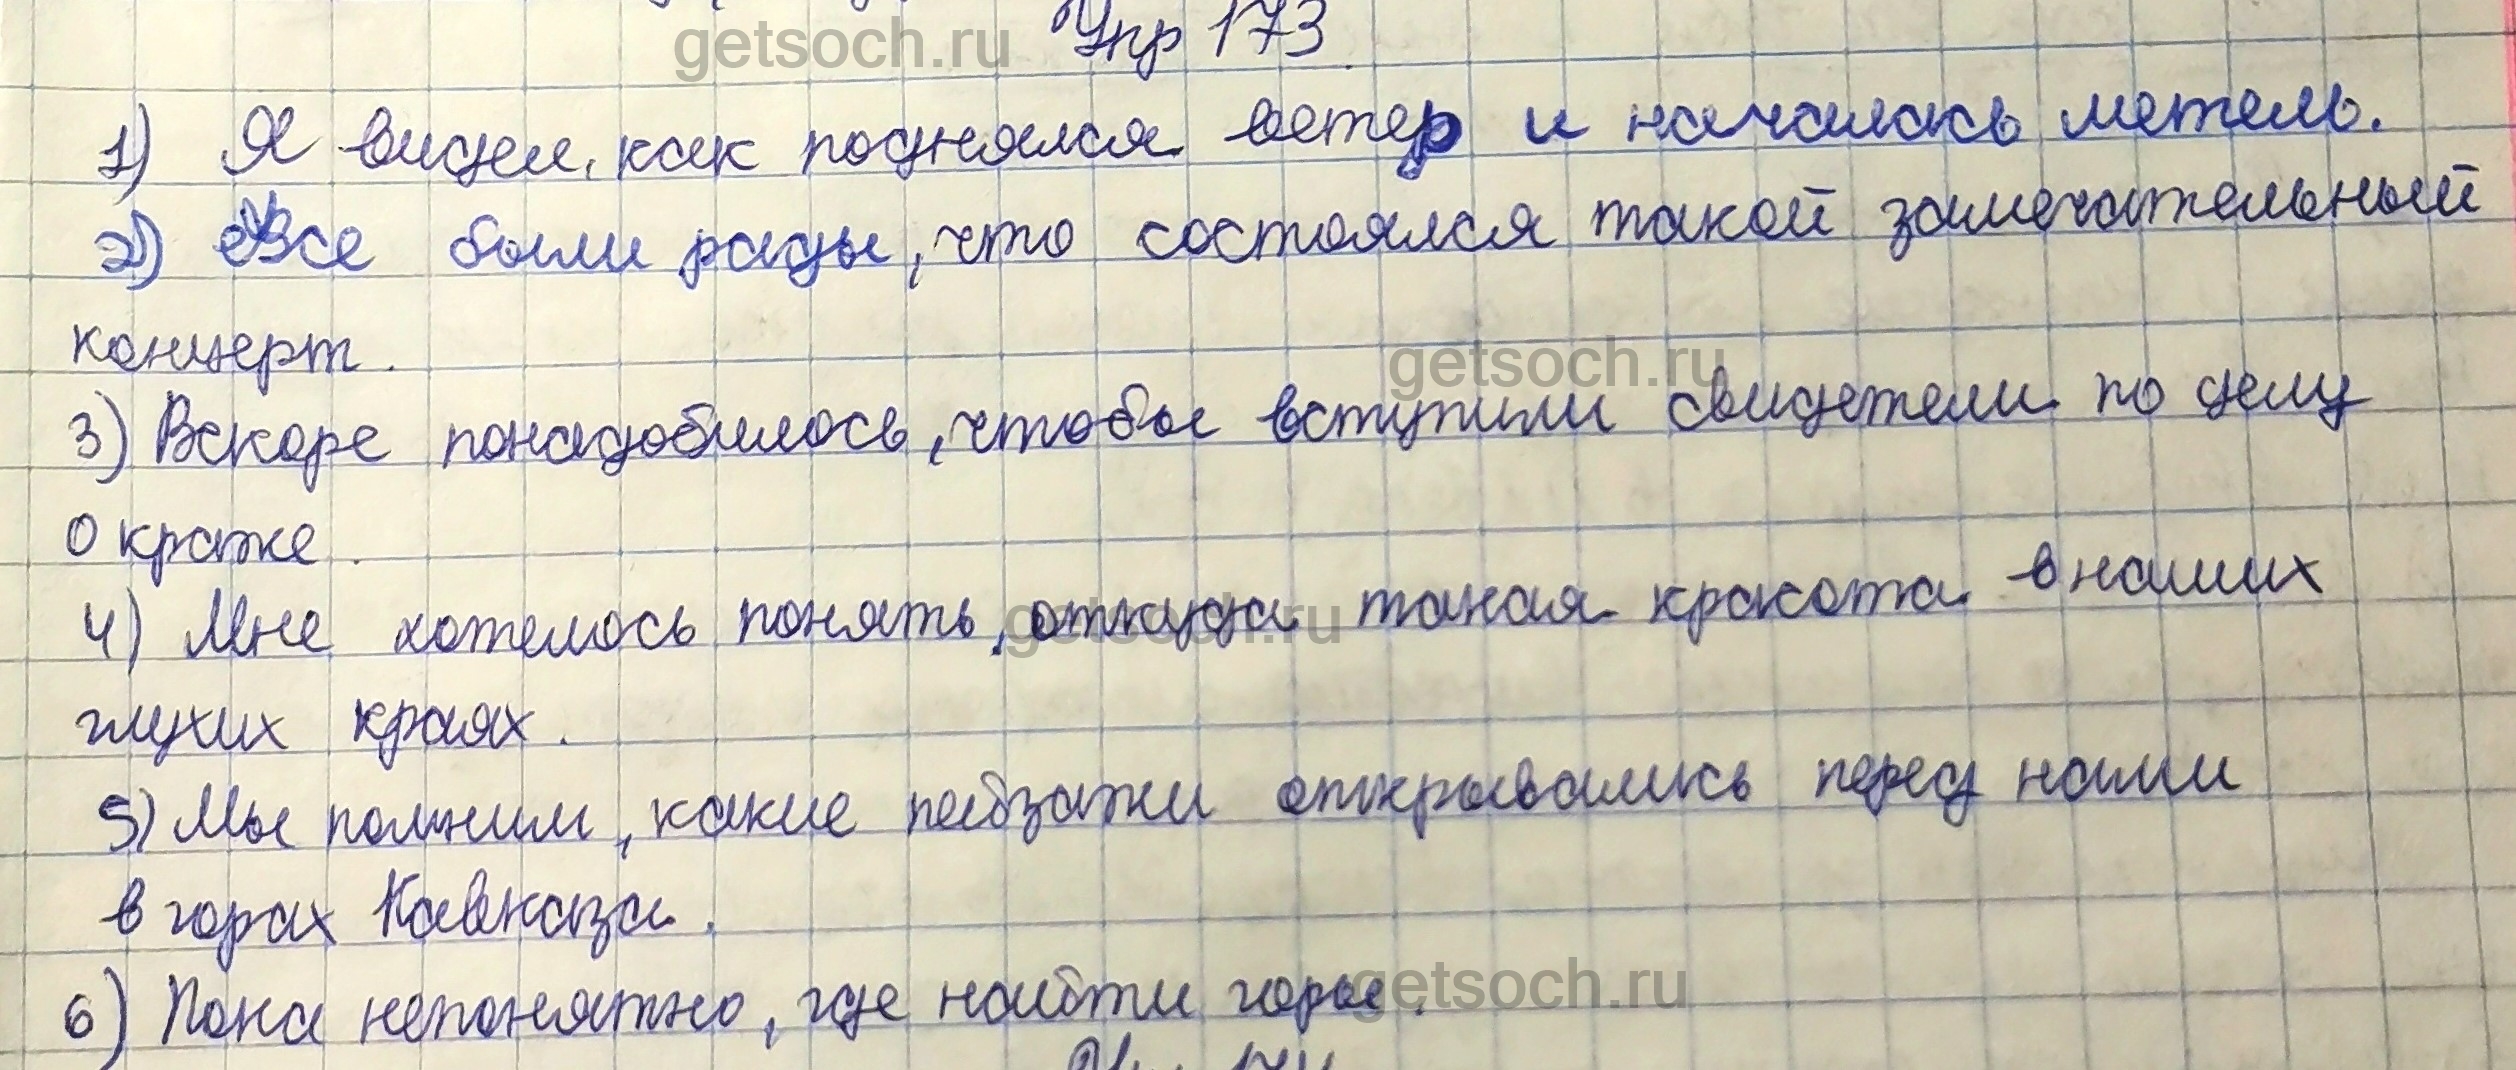 getsoch.ru
Упр 173.
1) Я видел, как поднялся ветер и началась метель.
2) Все были рады, что состоялся такой замечательный
концерт.
getsoch.ru
3) Вскоре понадобилось, чтобы вступили свидетели по делу
о краже.
4) Мне хотелось понять, откуда такая красота в наших
getsoch.ru
глухих краях.
5) Мы помним, какие пейзажи открывались перед нами
в горах Кавказа.
6) Пока непонятно, где найти горы.
getsoch.ru